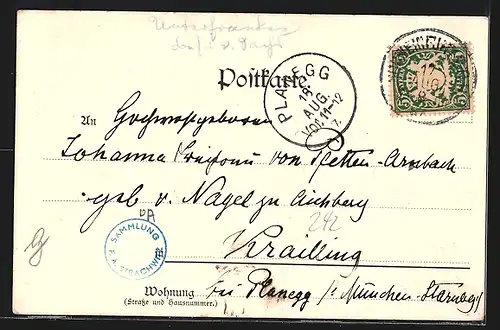 Unterfranken
Postkarte
PLANEGG
18
AUG.
VOR.11-12
7.
17
5 5
An Hochwohlgeboren
Johanna Freifrau von Stetten-Arnbach
geb v. Nagel zu Aichberg
242
SAMMLUNG
Krailling
Wohnung bei Planegg München-Starnberg
(Straße und Hausnummer.)